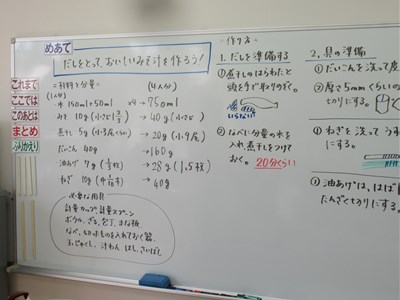 めあて
だしをとって、おいしいみそ汁を作ろう！
これまで
ここでは
このあとは
まとめ
ふりかえり
材料と分量
(1人分)
(4人分)
水 150ml+50ml ×4→750ml
みそ 10g →40g
煮干し 5g →20g
だいこん 40g →160g
油あげ 7g →28g (1.5枚)
ねぎ 10g →40g
必要な用具
計量カップ、計量スプーン
ボウル、ざる、包丁、まな板
なべ、切ったものを入れておく器
おたま
汁わん、はし、さいばし
作り方
1. だしを準備する
①煮干しのはらわたと
頭を手で取りのぞく。
いらない！！
②なべに分量の水を
入れ煮干しをつけて
おく。 20分くらい
2. 具の準備
①だいこんを洗って皮
②厚さ5mmくらいの
切りにする。
ねぎを洗って
にする。
油あげは、はば
たんざく切りにする。